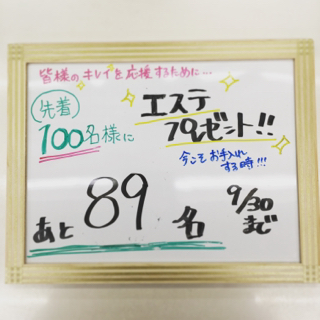 皆様のキレイを応援するために…
先着
100名様に
エステ
プレゼント!!
今こそお手入れ
する時!!!
あと 89 名
9/30
まで